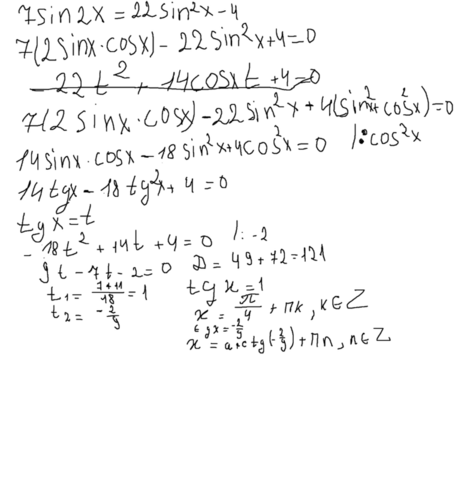 7sin2x = 22sin²x - 4
7(2sinx·cosx) - 22sin²x + 4 = 0
-22t², 14cosxt + 4 = 0
7(2sinx·cosx) - 22sin²x + 4(sin²x + cos²x) = 0
14sinx·cosx - 18sin²x + 4cos²x = 0 /:cos²x
14tgx - 18tg²x + 4 = 0
tgx = t
-18t² + 14t + 4 = 0 /:-2
9t - 7t - 2 = 0 D = 49 + 72 = 121
t₁ = (7+11)/18 = 1 tgx = 1
x = π/4 + πk, k∈Z
t₂ = -2/9 tgx = -2/9
x = arctg(-2/9) + πn, n∈Z